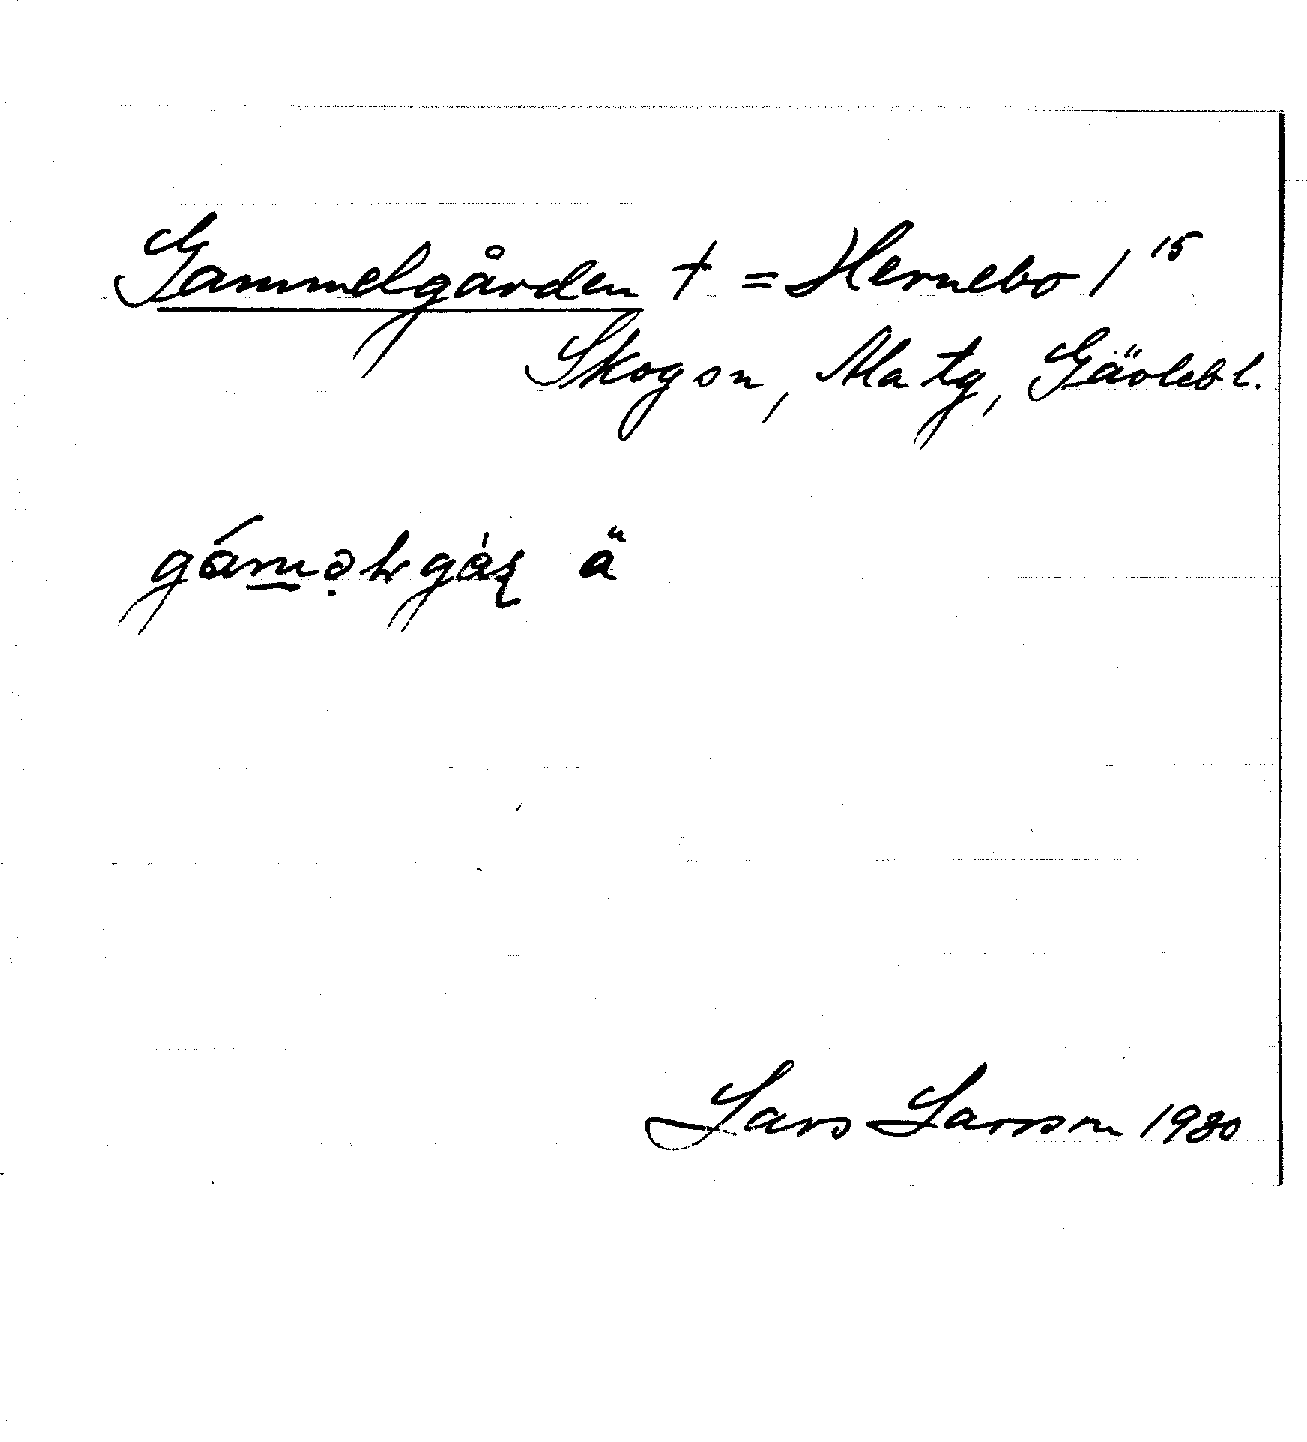 Gammelgården † = Hernebo 1¹⁵
Skogsn, Matg, Gävlebl.
ä
Lars Larsson 1980